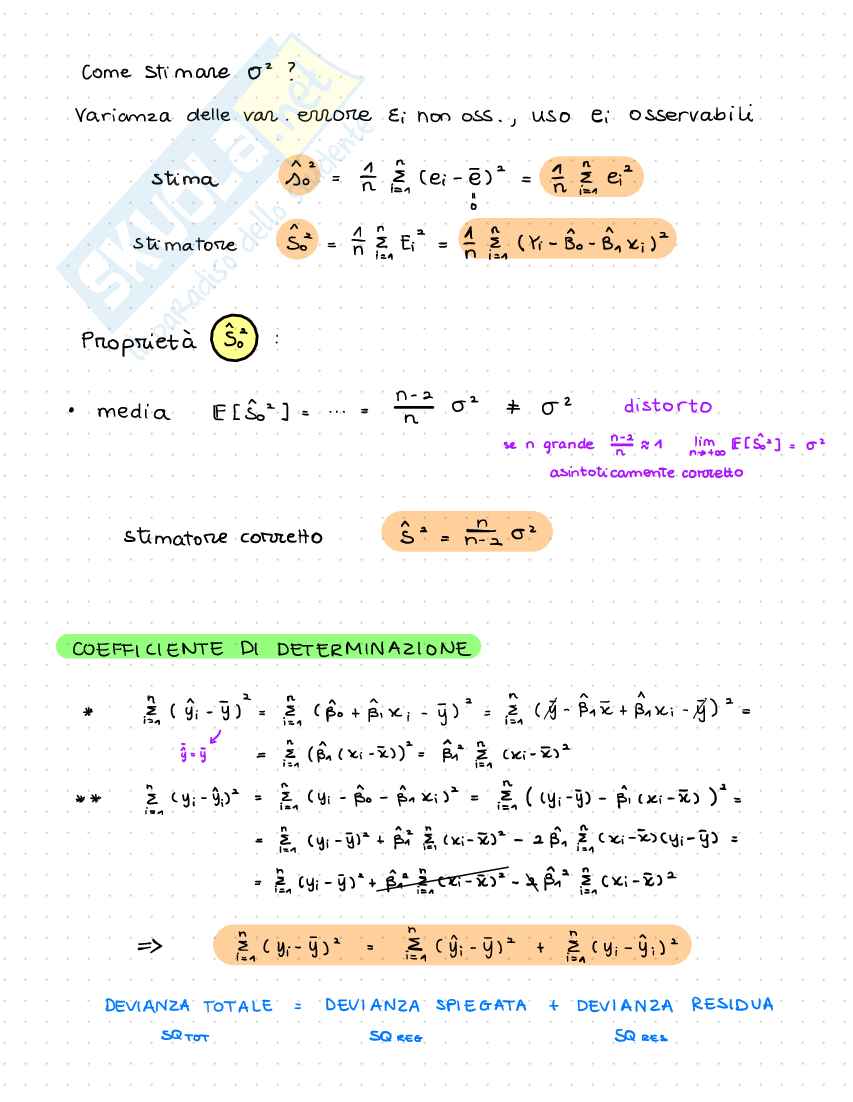 Come stimare σ² ?
Varianza delle var. errore εi non oss., uso ei osservabili
stima ŝ₀² = 1/n Σᵢ₌₁ⁿ (ei - ē)² = 1/n Σᵢ₌₁ⁿ ei²
"
0
stimatore Ŝ₀² = 1/n Σᵢ₌₁ⁿ Ei² = 1/n Σᵢ₌₁ⁿ (Yi - B̂₀ - B̂₁ xi)²
Proprietà Ŝ₀² :
• media E[Ŝ₀²] = ... = n-2/n σ² ≠ σ² distorto
se n grande n-2/n ≈ 1 lim n→+∞ E[Ŝ₀²] = σ²
asintoticamente corretto
stimatore corretto Ŝ² = n/n-2 σ²
COEFFICIENTE DI DETERMINAZIONE
* Σᵢ₌₁ⁿ (ŷi - ȳ)² = Σᵢ₌₁ⁿ (β̂₀ + β̂₁xi - ȳ)² = Σᵢ₌₁ⁿ (ȳ - β̂₁x̄ + β̂₁xi - ȳ)² =
ŷ̄ = ȳ = Σᵢ₌₁ⁿ (β̂₁(xi - x̄))² = β̂₁² Σᵢ₌₁ⁿ (xi - x̄)²
** Σᵢ₌₁ⁿ (yi - ŷi)² = Σᵢ₌₁ⁿ (yi - β̂₀ - β̂₁xi)² = Σᵢ₌₁ⁿ ((yi - ȳ) - β̂₁(xi - x̄))² =
= Σᵢ₌₁ⁿ (yi - ȳ)² + β̂₁² Σᵢ₌₁ⁿ (xi - x̄)² - 2β̂₁ Σᵢ₌₁ⁿ (xi - x̄)(yi - ȳ) =
= Σᵢ₌₁ⁿ (yi - ȳ)² + β̂₁² Σᵢ₌₁ⁿ (xi - x̄)² - 2 β̂₁² Σᵢ₌₁ⁿ (xi - x̄)²
=> Σᵢ₌₁ⁿ (yi - ȳ)² = Σᵢ₌₁ⁿ (ŷi - ȳ)² + Σᵢ₌₁ⁿ (yi - ŷi)²
DEVIANZA TOTALE = DEVIANZA SPIEGATA + DEVIANZA RESIDUA
SQ TOT SQ REG SQ RES
SKUOLA.net
il paradiso dello studente